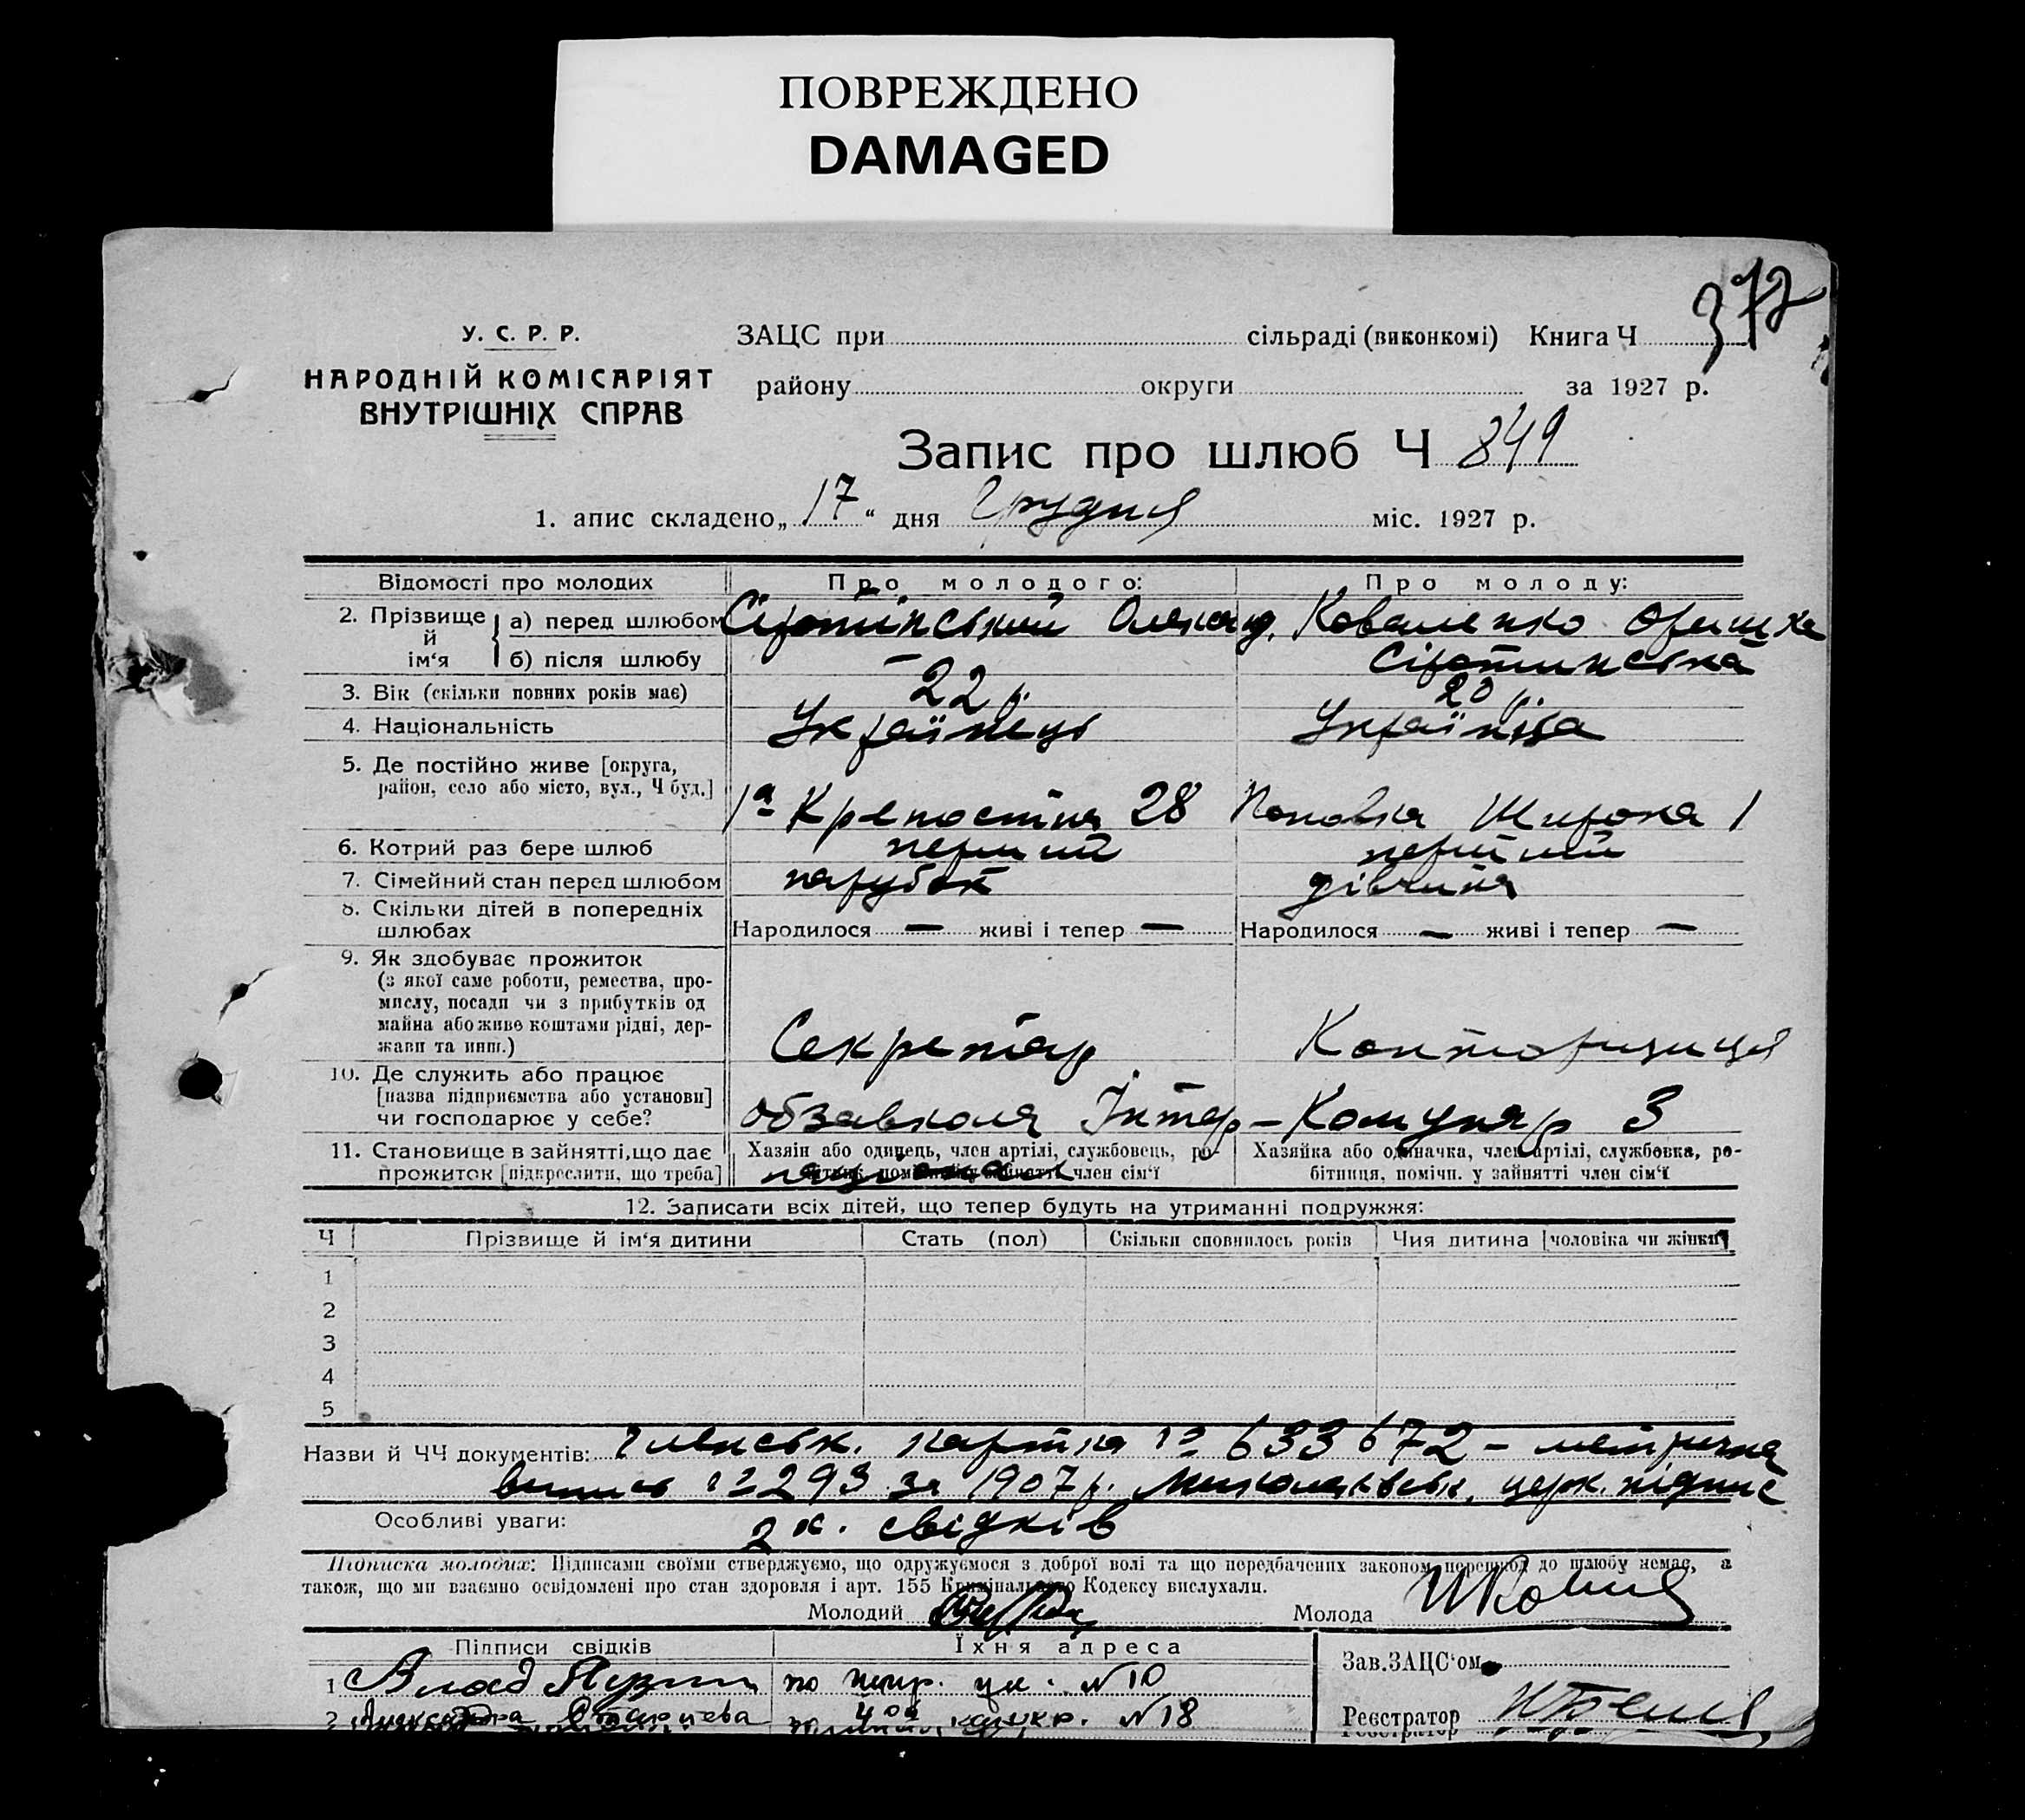 ПОВРЕЖДЕНО
DAMAGED
372
У. С. Р. Р.
НАРОДНІЙ КОМІСАРІЯТ
ВНУТРІШНІХ СПРАВ
ЗАЦС при сільраді (виконкомі) Книга Ч
району округи за 1927 р.
Запис про шлюб Ч 849
1. апис складено „17“ дня Грудня міс. 1927 р.
Відомості про молодих Про молодого: Про молоду:
2. Прізвище й ім‘я а) перед шлюбом Сіротінський Олександ. Коваленко Оришка
б) після шлюбу — Сіротинська
3. Вік (скільки повних років має) 22 р. 20 р.
4. Національність Українець Українка
5. Де постійно живе [округа,
район, село або місто, вул., Ч буд.] 1а Крепостна 28 Поповка Широка 1
6. Котрий раз бере шлюб перший перший
7. Сімейний стан перед шлюбом парубок дівчина
8. Скільки дітей в попередніх
шлюбах Народилося — живі і тепер — Народилося — живі і тепер —
9. Як здобуває прожиток
(з якої саме роботи, ремества, про-
мислу, посади чи з прибутків од
майна або живе коштами рідні, дер-
жави та инш.) Секретар Конторщиця
10. Де служить або працює
[назва підприємства або установи]
чи господарює у себе? Інтер- Комунар 3
11. Становище в зайнятті, що дає
прожиток [підкреслити, що треба]
Хазяін або одинець, член артілі, службовець, ро-
бітник, помічн. у зайнятті член сім‘ї
національ
Хазяйка або одиначка, член артілі, службовка, ро-
бітниця, помічн. у зайнятті член сім‘ї
12. Записати всіх дітей, що тепер будуть на утриманні подружжя:
Ч Прізвище й ім‘я дитини Стать (пол) Скільки сповнилось років Чия дитина [чоловіка чи жінки]
1
2
3
4
5
Назви й ЧЧ документів: Членськ. картка № 633672 – метрична
випись № 293 за 1907 р. церк. підпис
Особливі уваги: 2х. свідків
Підписка молодих: Підписами своїми стверджуємо, що одружуємося з доброї волі та що передбачених законом перешкод до шлюбу немає, а
також, що ми взаємно освідомлені про стан здоровля і арт. 155 Кримінального Кодексу вислухали.
Молодий Молода
Підписи свідків Їхня адреса
Зав. ЗАЦС‘ом
1 Влад № 10
2 Александра № 18
Реєстратор